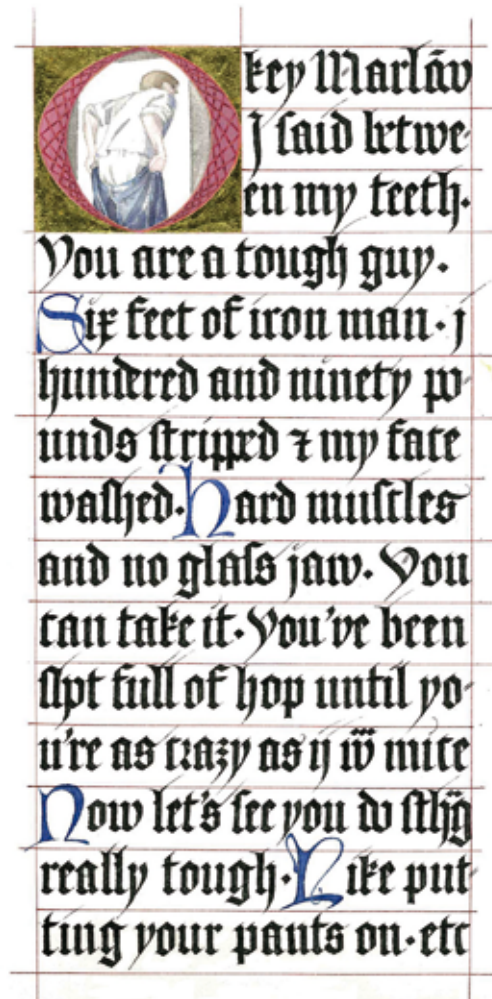 Okey Marlōw
I ſaid betwe-
en my teeth·
You are a tough guy·
Six feet of iron man· j
hundred and ninety po-
unds ſtripped ⁊ my face
waſhed· Hard muſcles
and no glaſs jaw· You
can take it· You've been
ſhot full of hop until yo-
u're as crazy as ij w̄ mice
Now let's ſee you do ſthīg
really tough· Like put-
ting your pants on· etc